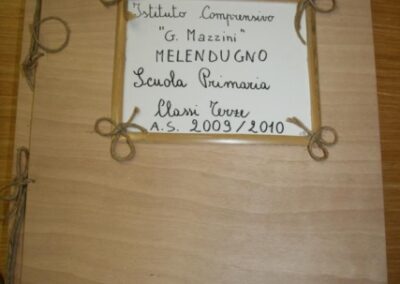 Istituto Comprensivo
"G. Mazzini"
MELENDUGNO
Scuola Primaria
Classi Terze
A.S. 2009/2010